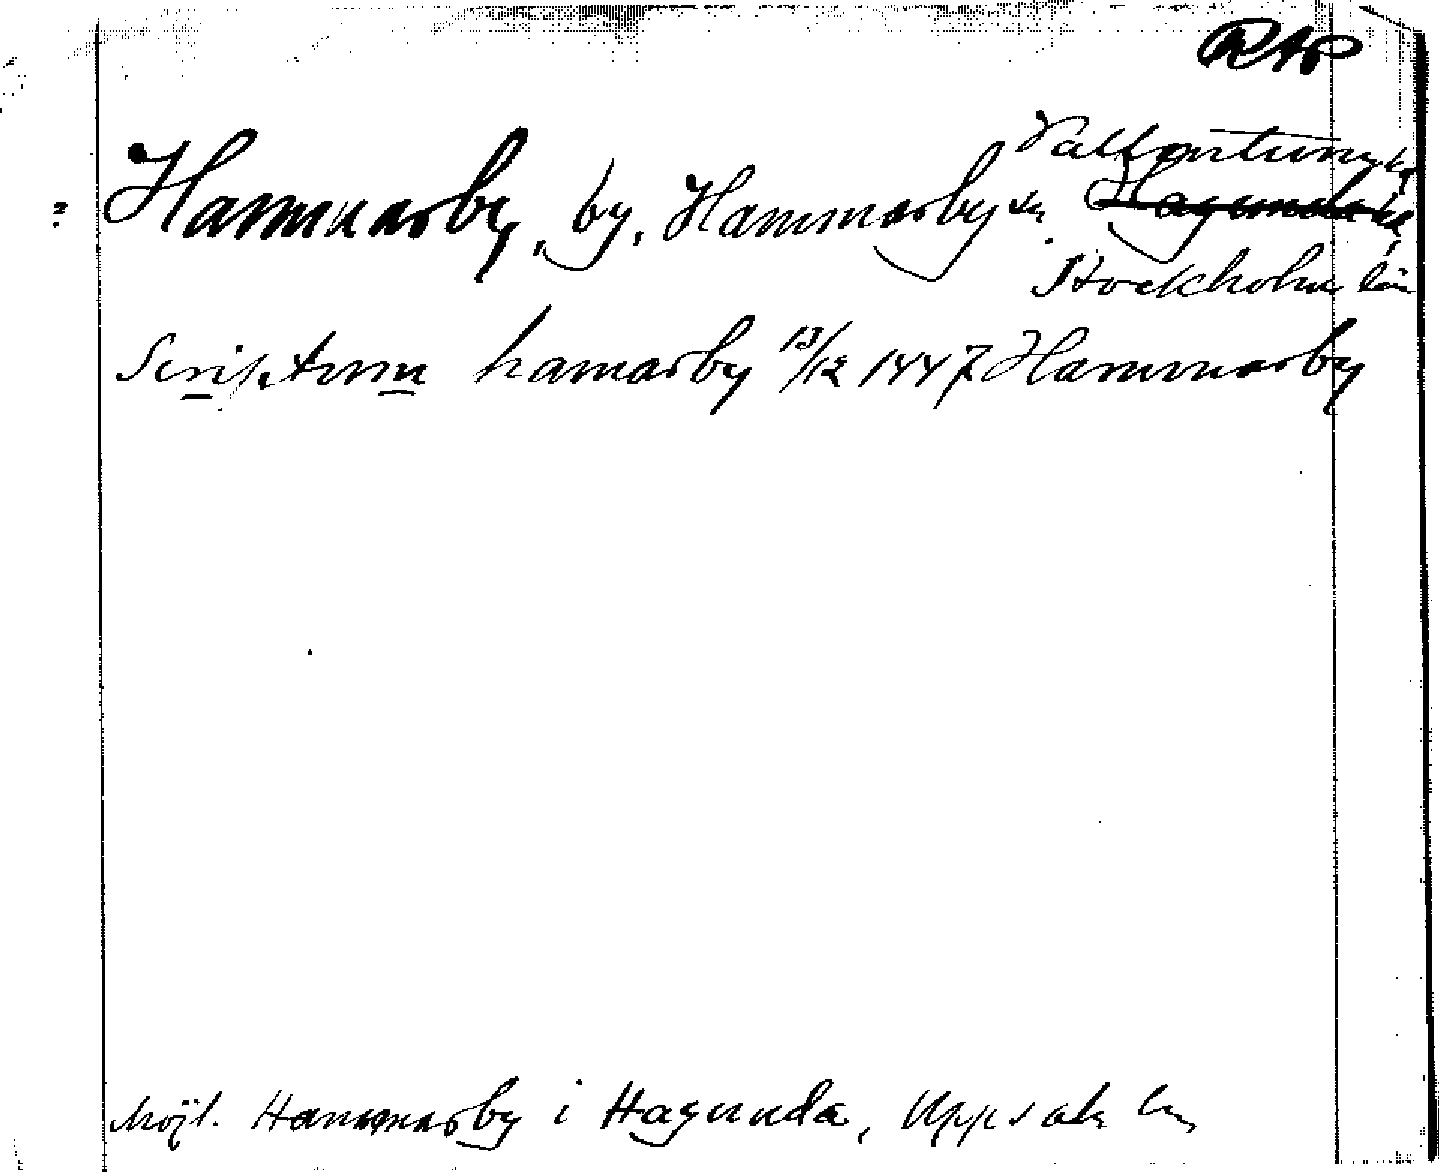 RAp
Vallentuna hd
= Hammarby, by, Hammarby sn Hagunda hd,
Stockholms län
Scriptum hamarby 13/12 1447 Hammarby
Möjl. Hammarby i Hagunda, Uppsala län